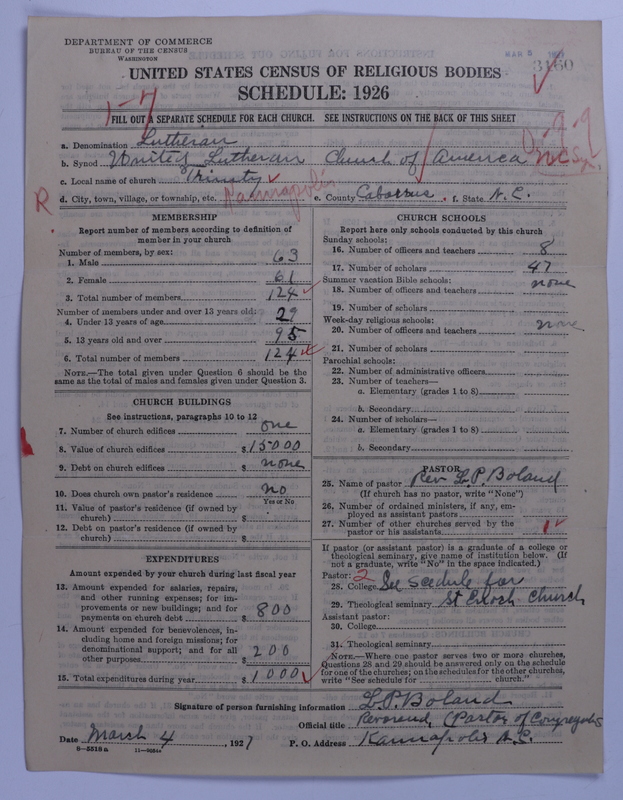 DEPARTMENT OF COMMERCE
BUREAU OF THE CENSUS
WASHINGTON
3160
UNITED STATES CENSUS OF RELIGIOUS BODIES
SCHEDULE: 1926
1-7
FILL OUT A SEPARATE SCHEDULE FOR EACH CHURCH. SEE INSTRUCTIONS ON THE BACK OF THIS SHEET
a. Denomination Lutheran
b. Synod United Lutheran Church of America
c. Local name of church Trinity
R
d. City, town, village, or township, etc. Kannapolis e. County Cabarrus f. State N.C.
MEMBERSHIP
Report number of members according to definition of
member in your church
Number of members, by sex:
1. Male 63
2. Female 61
3. Total number of members 124
Number of members under and over 13 years old:
4. Under 13 years of age 29
5. 13 years old and over 95
6. Total number of members 124
NOTE.—The total given under Question 6 should be the
same as the total of males and females given under Question 3.
CHURCH BUILDINGS
See instructions, paragraphs 10 to 12
7. Number of church edifices one
8. Value of church edifices $ 15000
9. Debt on church edifices $ none
10. Does church own pastor's residence no
Yes or No
11. Value of pastor's residence (if owned by
church) $
12. Debt on pastor's residence (if owned by
church) $
EXPENDITURES
Amount expended by your church during last fiscal year
13. Amount expended for salaries, repairs,
and other running expenses; for im-
provements or new buildings; and for
payments on church debt $ 800
14. Amount expended for benevolences, in-
cluding home and foreign missions; for
denominational support; and for all
other purposes $ 200
15. Total expenditures during year $ 1000
CHURCH SCHOOLS
Report here only schools conducted by this church
Sunday schools:
16. Number of officers and teachers 8
17. Number of scholars 47
Summer vacation Bible schools:
18. Number of officers and teachers none
19. Number of scholars
Week-day religious schools:
20. Number of officers and teachers none
21. Number of scholars
Parochial schools:
22. Number of administrative officers
23. Number of teachers—
a. Elementary (grades 1 to 8)
b. Secondary
24. Number of scholars—
a. Elementary (grades 1 to 8)
b. Secondary
PASTOR
25. Name of pastor Rev L.P. Boland
(If church has no pastor, write "None")
26. Number of ordained ministers, if any, em-
ployed as assistant pastors
27. Number of other churches served by the
pastor or his assistants 1
If pastor (or assistant pastor) is a graduate of a college or
theological seminary, give name of institution below. (If
not a graduate, write "No" in the space indicated.)
Pastor: 2
28. College See Scedule for
29. Theological seminary St Enoch Church
Assistant pastor:
30. College
31. Theological seminary
NOTE.—Where one pastor serves two or more churches,
Questions 28 and 29 should be answered only on the schedule
for one of the churches; on the schedules for the other churches,
write "See schedule for church."
Signature of person furnishing information L.P. Boland
Official title Reverend (Pastor of
Date March 4, 1927 P. O. Address Kannapolis N.C.
8-5518a 11-9064a